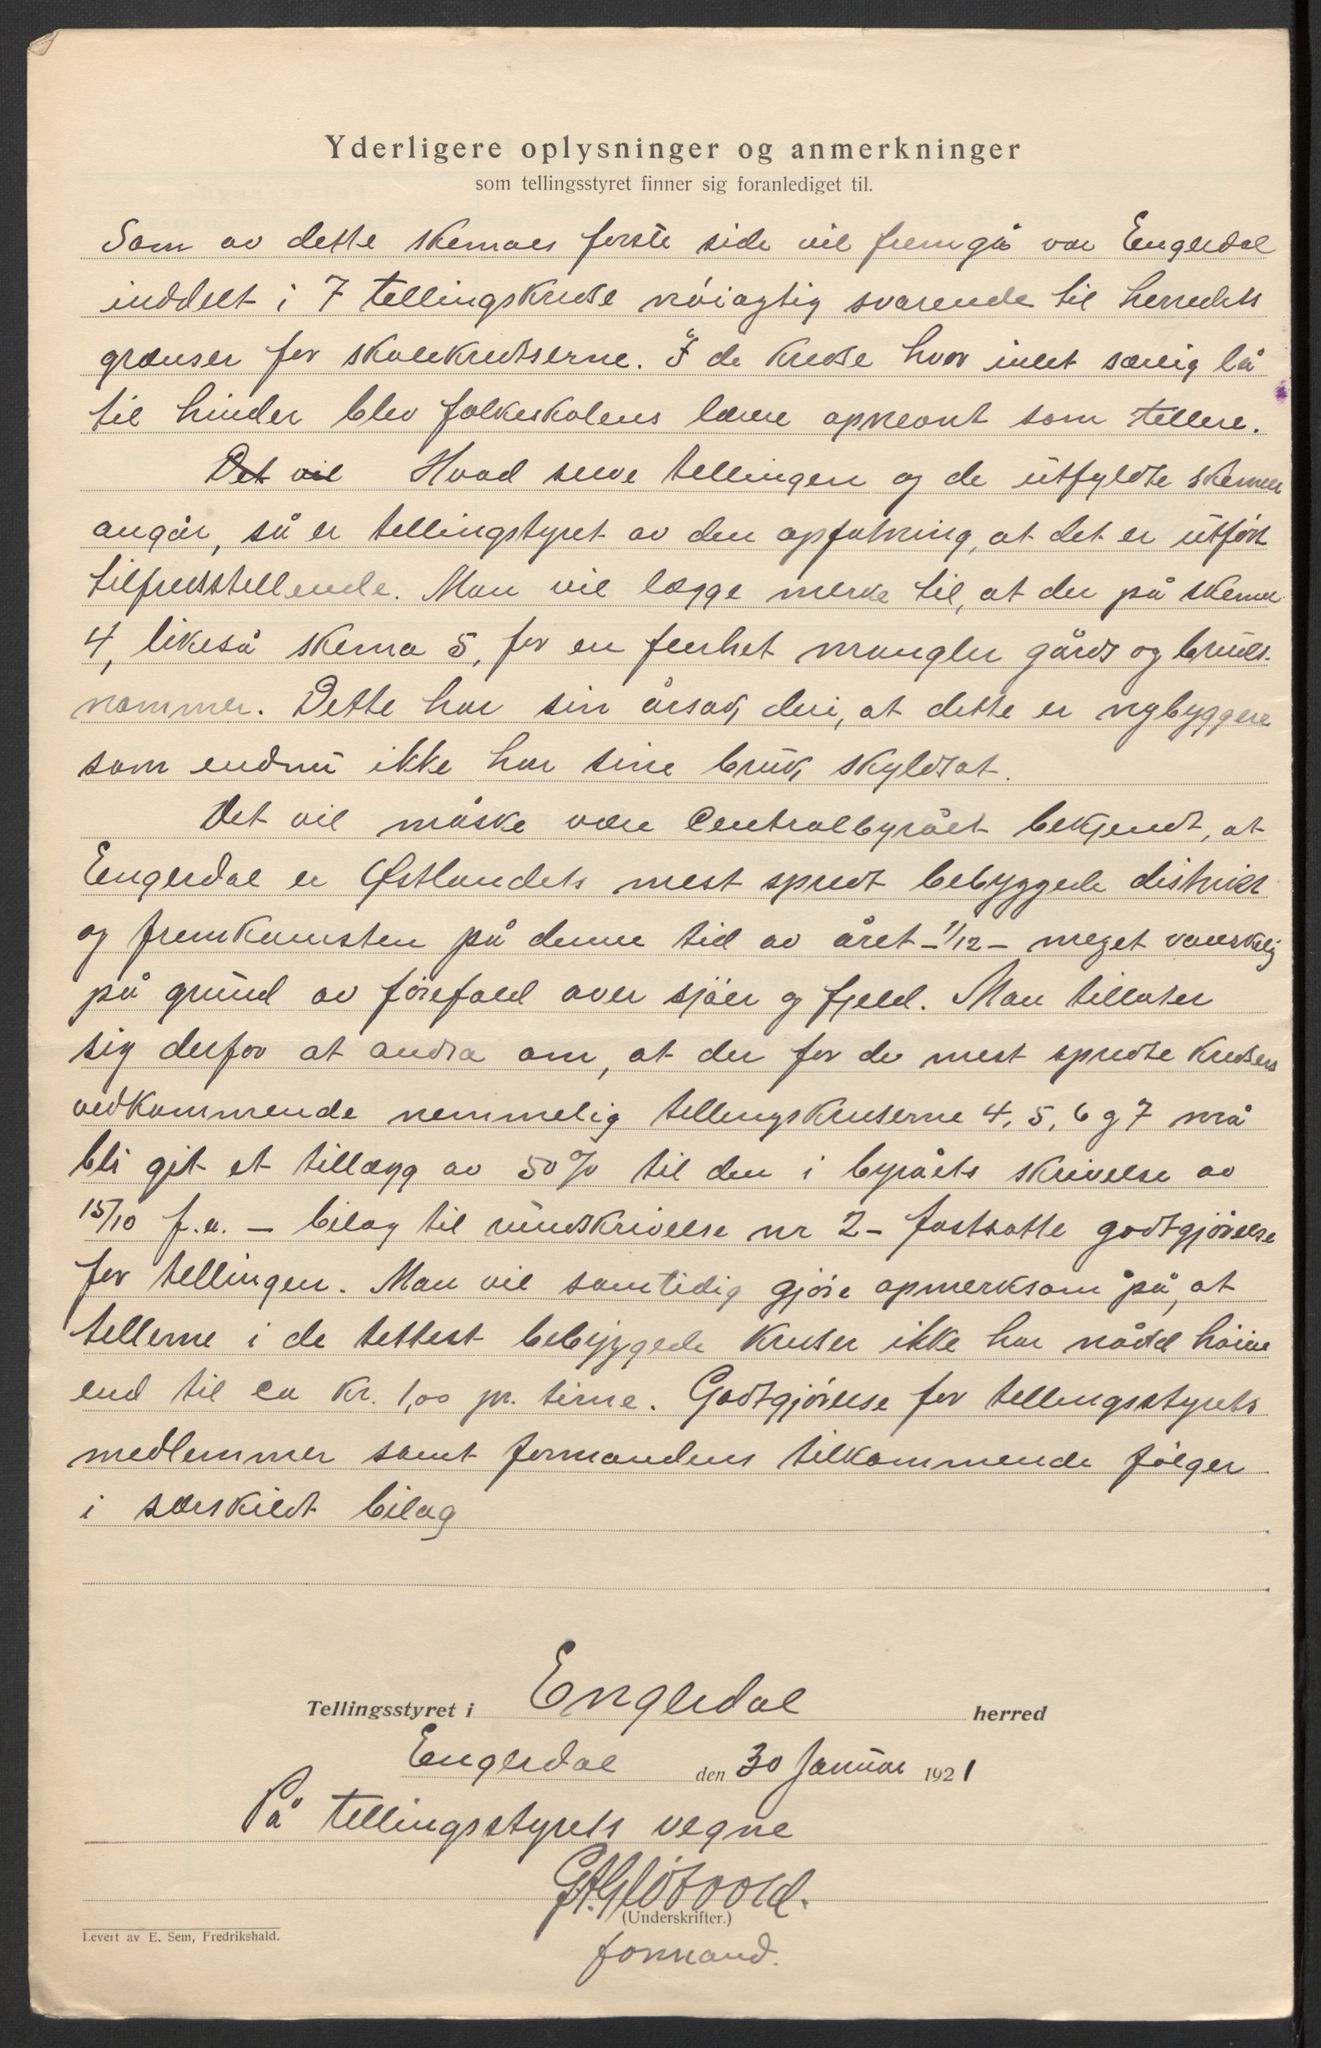 Yderligere oplysninger og anmerkninger
som tellingsstyret finner sig foranlediget til.
Som av dette skemaes første side vil fremgå var Engerdal
inddelt i 7 tellingskredse nöiagtig svarende til herredets
grænser for skolekredserne. I de kredse hvor intet særlig lå
til hinder blev folkeskolens lærere opnevnt som tellere.
Det vil Hvad selve tellingen og de utfyldte skemaer
angår, så er tellingstyret av den opfatning, at det er utfört
tilfredsstillende. Man vil lægge merke til, at der på skema
4, likeså skema 5, for en fenhet mangler gårds og bruks-
nommer. Dette har sin årsak deri, at dette er nybyggere
som endnu ikke har sine bruk skyldsat.
Det vil måske være Centralbyrået bekjendt, at
Engerdal er Østlandets mest spredt bebyggede distrikt
og fremkomsten på denne tid av året - 1/12 - meget vanskelig
på grund av förefald over sjöer og fjeld. Man tillater
sig derfor at andra om, at der for de mest spredte kredsers
vedkommende nemmelig tellingskredserne 4, 5, 6 og 7 må
bli git et tillægg av 50% til den i byråets skrivelse av
15/10 f.a. - bilag til rundskrivelse nr 2 - fastsatte godtgjörelse
for tellingen. Man vil samtidig gjöre opmerksom på, at
tellerne i de tettest bebyggede kredser ikke har nådd höiere
end til ca kr. 1,00 pr. time. Godtgjörelse for tellingsstyrets
medlemmer samt formandens tilkommende fölger
i særskildt bilag
Tellingsstyret i Engerdal herred
Engerdal den 30 Januar 1921
På tellingsstyrets vegne
G.A. Glötvold.
(Underskrifter.)
formand.
Levert av E. Sem, Fredrikshald.